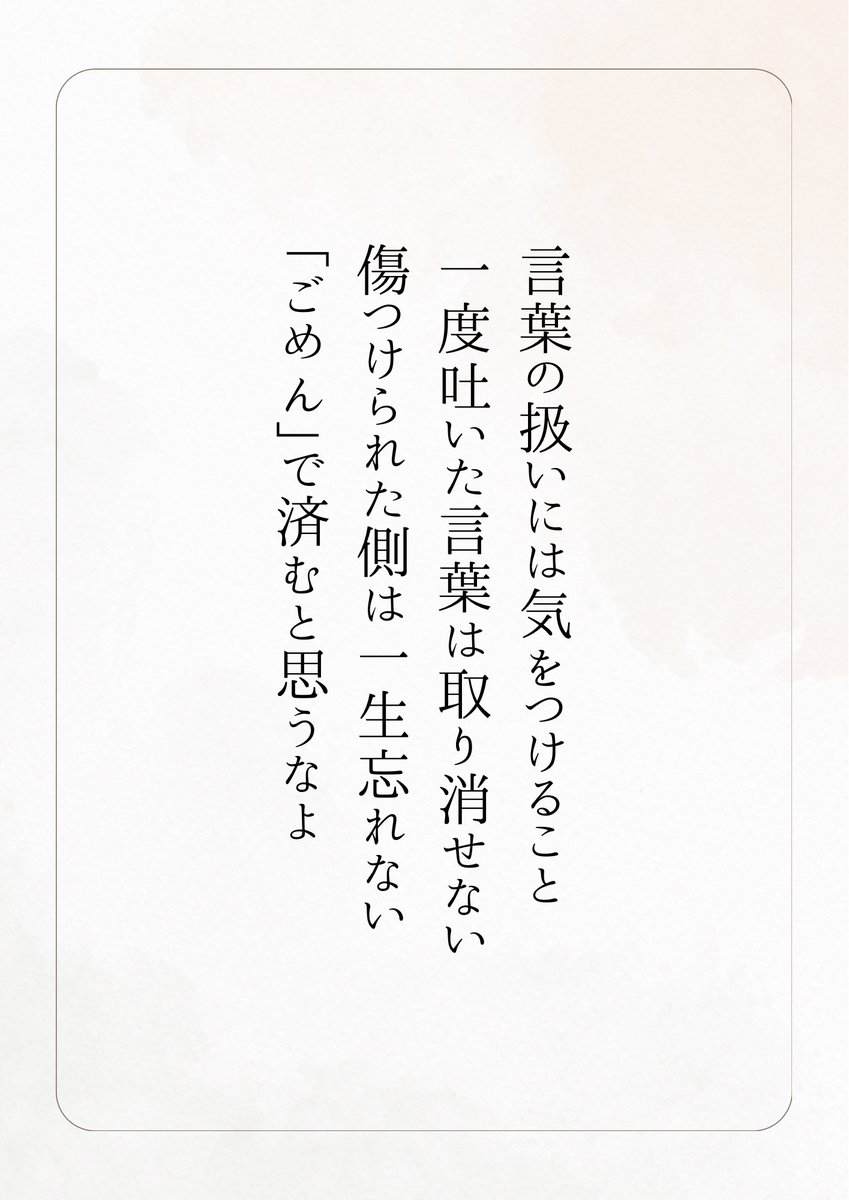 言葉の扱いには気をつけること
一度吐いた言葉は取り消せない
傷つけられた側は一生忘れない
「ごめん」で済むと思うなよ